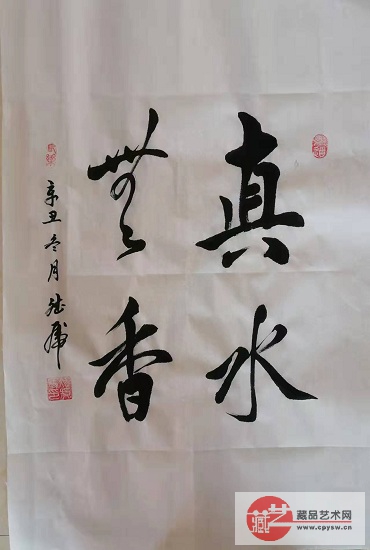 真水
無香
辛丑冬月
藏品艺术网
www.cpysw.cn